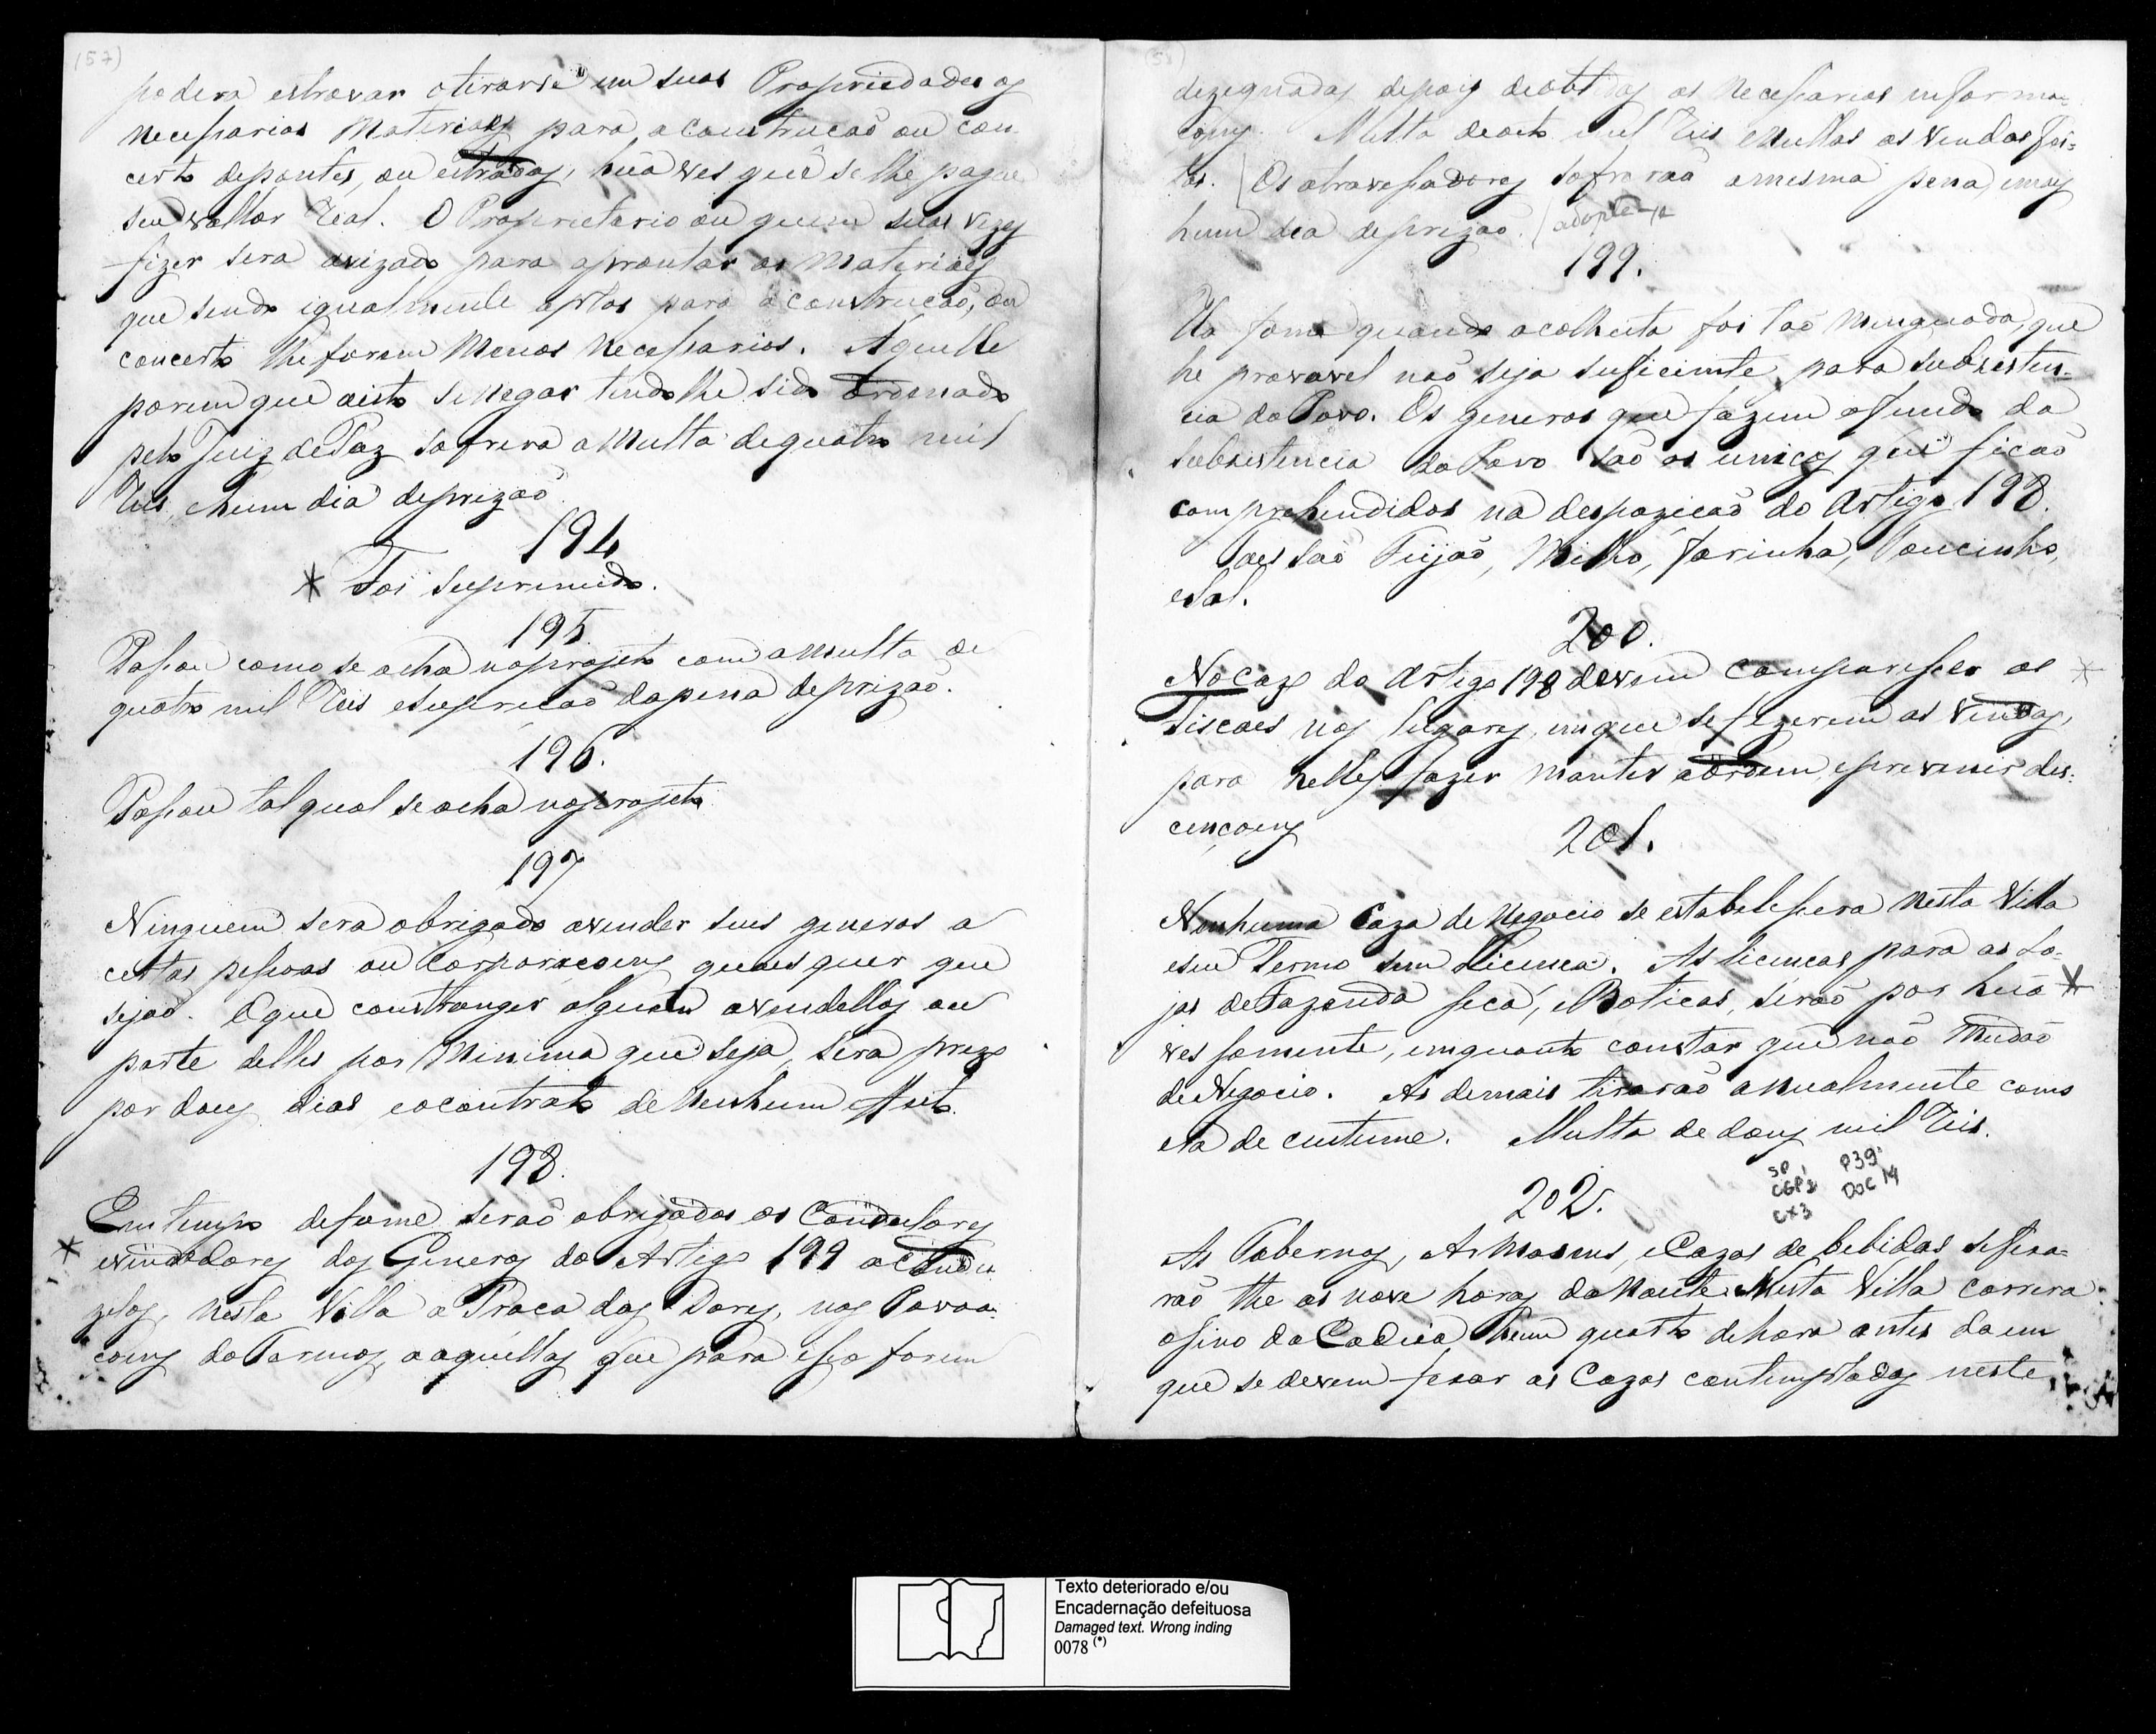 (57)
podera estrovar otirarse em suas Propriedades os
necessarios Materiaes para aconstrucaõ ou con-
certo depontes, ou estradas, huã ves que se lhe pague
seu vallor Real. O Proprietario ou quem suas vezes
fizer sera avizado para aprontar os Materiaes
que sendo igualmente aptos para aconstrucaõ, ou
concerto lhe forem Menos Necessarios. Aquelle
porem que aisto senegar tendolhe sido ordenado
pelo Juiz dePaz sofrera aMulta dequatro mil
Reis, ehum dia deprizaõ
194
* Foi suprimido.
195.
Passou como se acha noprojeto com amulta de
quatro mil Reis esupreçaõ dapena deprizaõ.
196.
Passou tal qual se acha noprojeto
197
Ninguem sera obrigado avender seus generos a
certas pessoas ou Corporacoens quaes quer que
sejaõ. Oque constranger alguem avendellos ou
parte delles por Minima que seja, sera prezo
por dous dias eocontrato de Nenhum effeito.
198.
Em tempo defome seraõ obrigados os Condutores
* evendedores dos Generos do Artigo 199 aCondu
zilos, nesta Villa a Praca das Dores, nas Povoa-
coens doTermos, aaquellas que para isso forem
(58)
dezignadas depois deobtidas as necessarias informa-
coens. Multa deoito mil Reis enullas as vendas fei-
tas. (Os atravessadores sofreraõ amesma pena, emais
hum dia deprizaõ.) adopte-se
199.
Ha fome quando acolheita foi taõ minguada, que
he provavel naõ seja suficiente para subsisten-
cia do Povo. Os generos que fazem ofundo da
subsistencia do Povo saõ os unicos que ficaõ
comprehendidos na despoziçaõ do Artigo 198.
Taes saõ Feijaõ, Milho, farinha, Toucinho,
eSal.
200.
No Cazo do Artigo 198 devem comparesser os *
Fiscaes nos lugares, emque sefizerem as Vendas,
para nelles fazer manter aordem, eprevenir des-
cençoens
201.
Nenhuma Caza de Negocio se estabelessera Nesta Villa
eseu Termo sem Licenca. As licencas para as Lo-
jas deFazenda seca, eBoticas, seraõ por huã *
ves somente, emquanto constar que naõ Mudaõ
deNegocio. As demais tiraraõ anualmente como
era de custume. Multa de dous mil Reis.
SP 1 P39
CGP1 DOC 14
CX3
202.
As Tabernas, Armasens eCazas de bebidas sefixa-
raõ the as nove horas daNoute. Nesta Villa correra
osino da Cadeia hum quarto dehora antes daem
que se devem fexar as Cazas contempladas neste
Texto deteriorado e/ou
Encadernação defeituosa
Damaged text. Wrong inding
0078 (*)